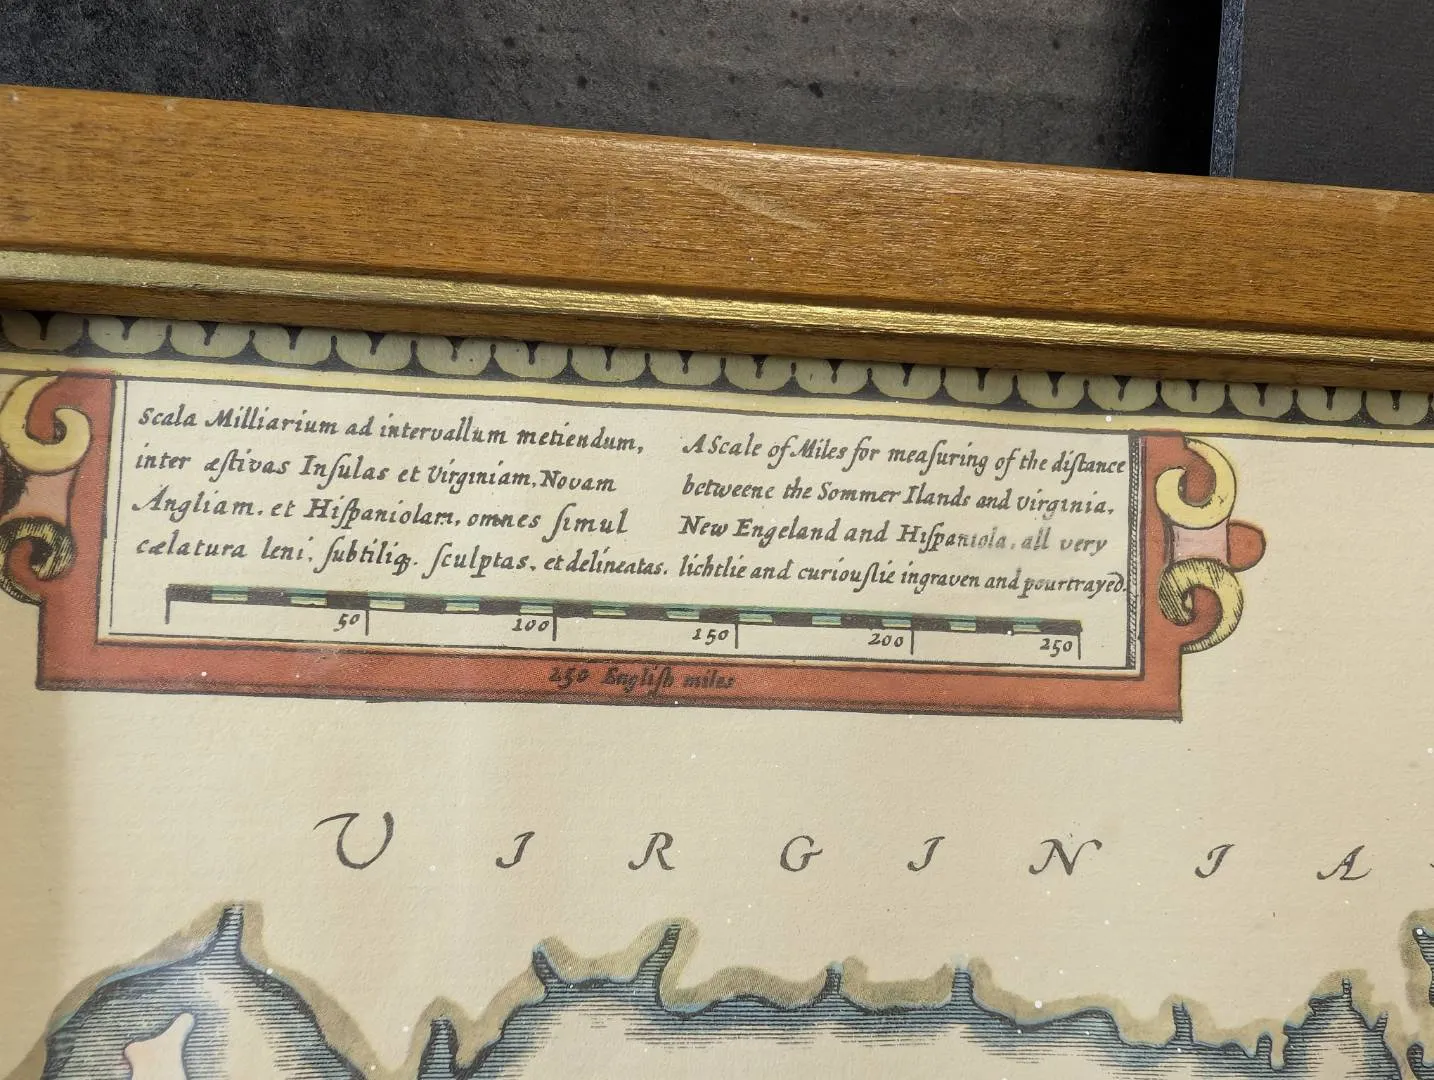 Scala Milliarium ad intervallum metiendum,
inter æſtivas Inſulas et Virginiam, Novam
Angliam. et Hiſpaniolam, omnes ſimul
cælatura leni, ſubtiliq. ſculptas, et delineatas.
A Scale of Miles for meaſuring of the diſtance
betweene the Sommer Ilands and Virginia,
New Engeland and Hiſpaniola, all very
lichtlie and curiouſlie ingraven and pourtrayed.
50 100 150 200 250
250 Engliſh miles
VIRGINIA